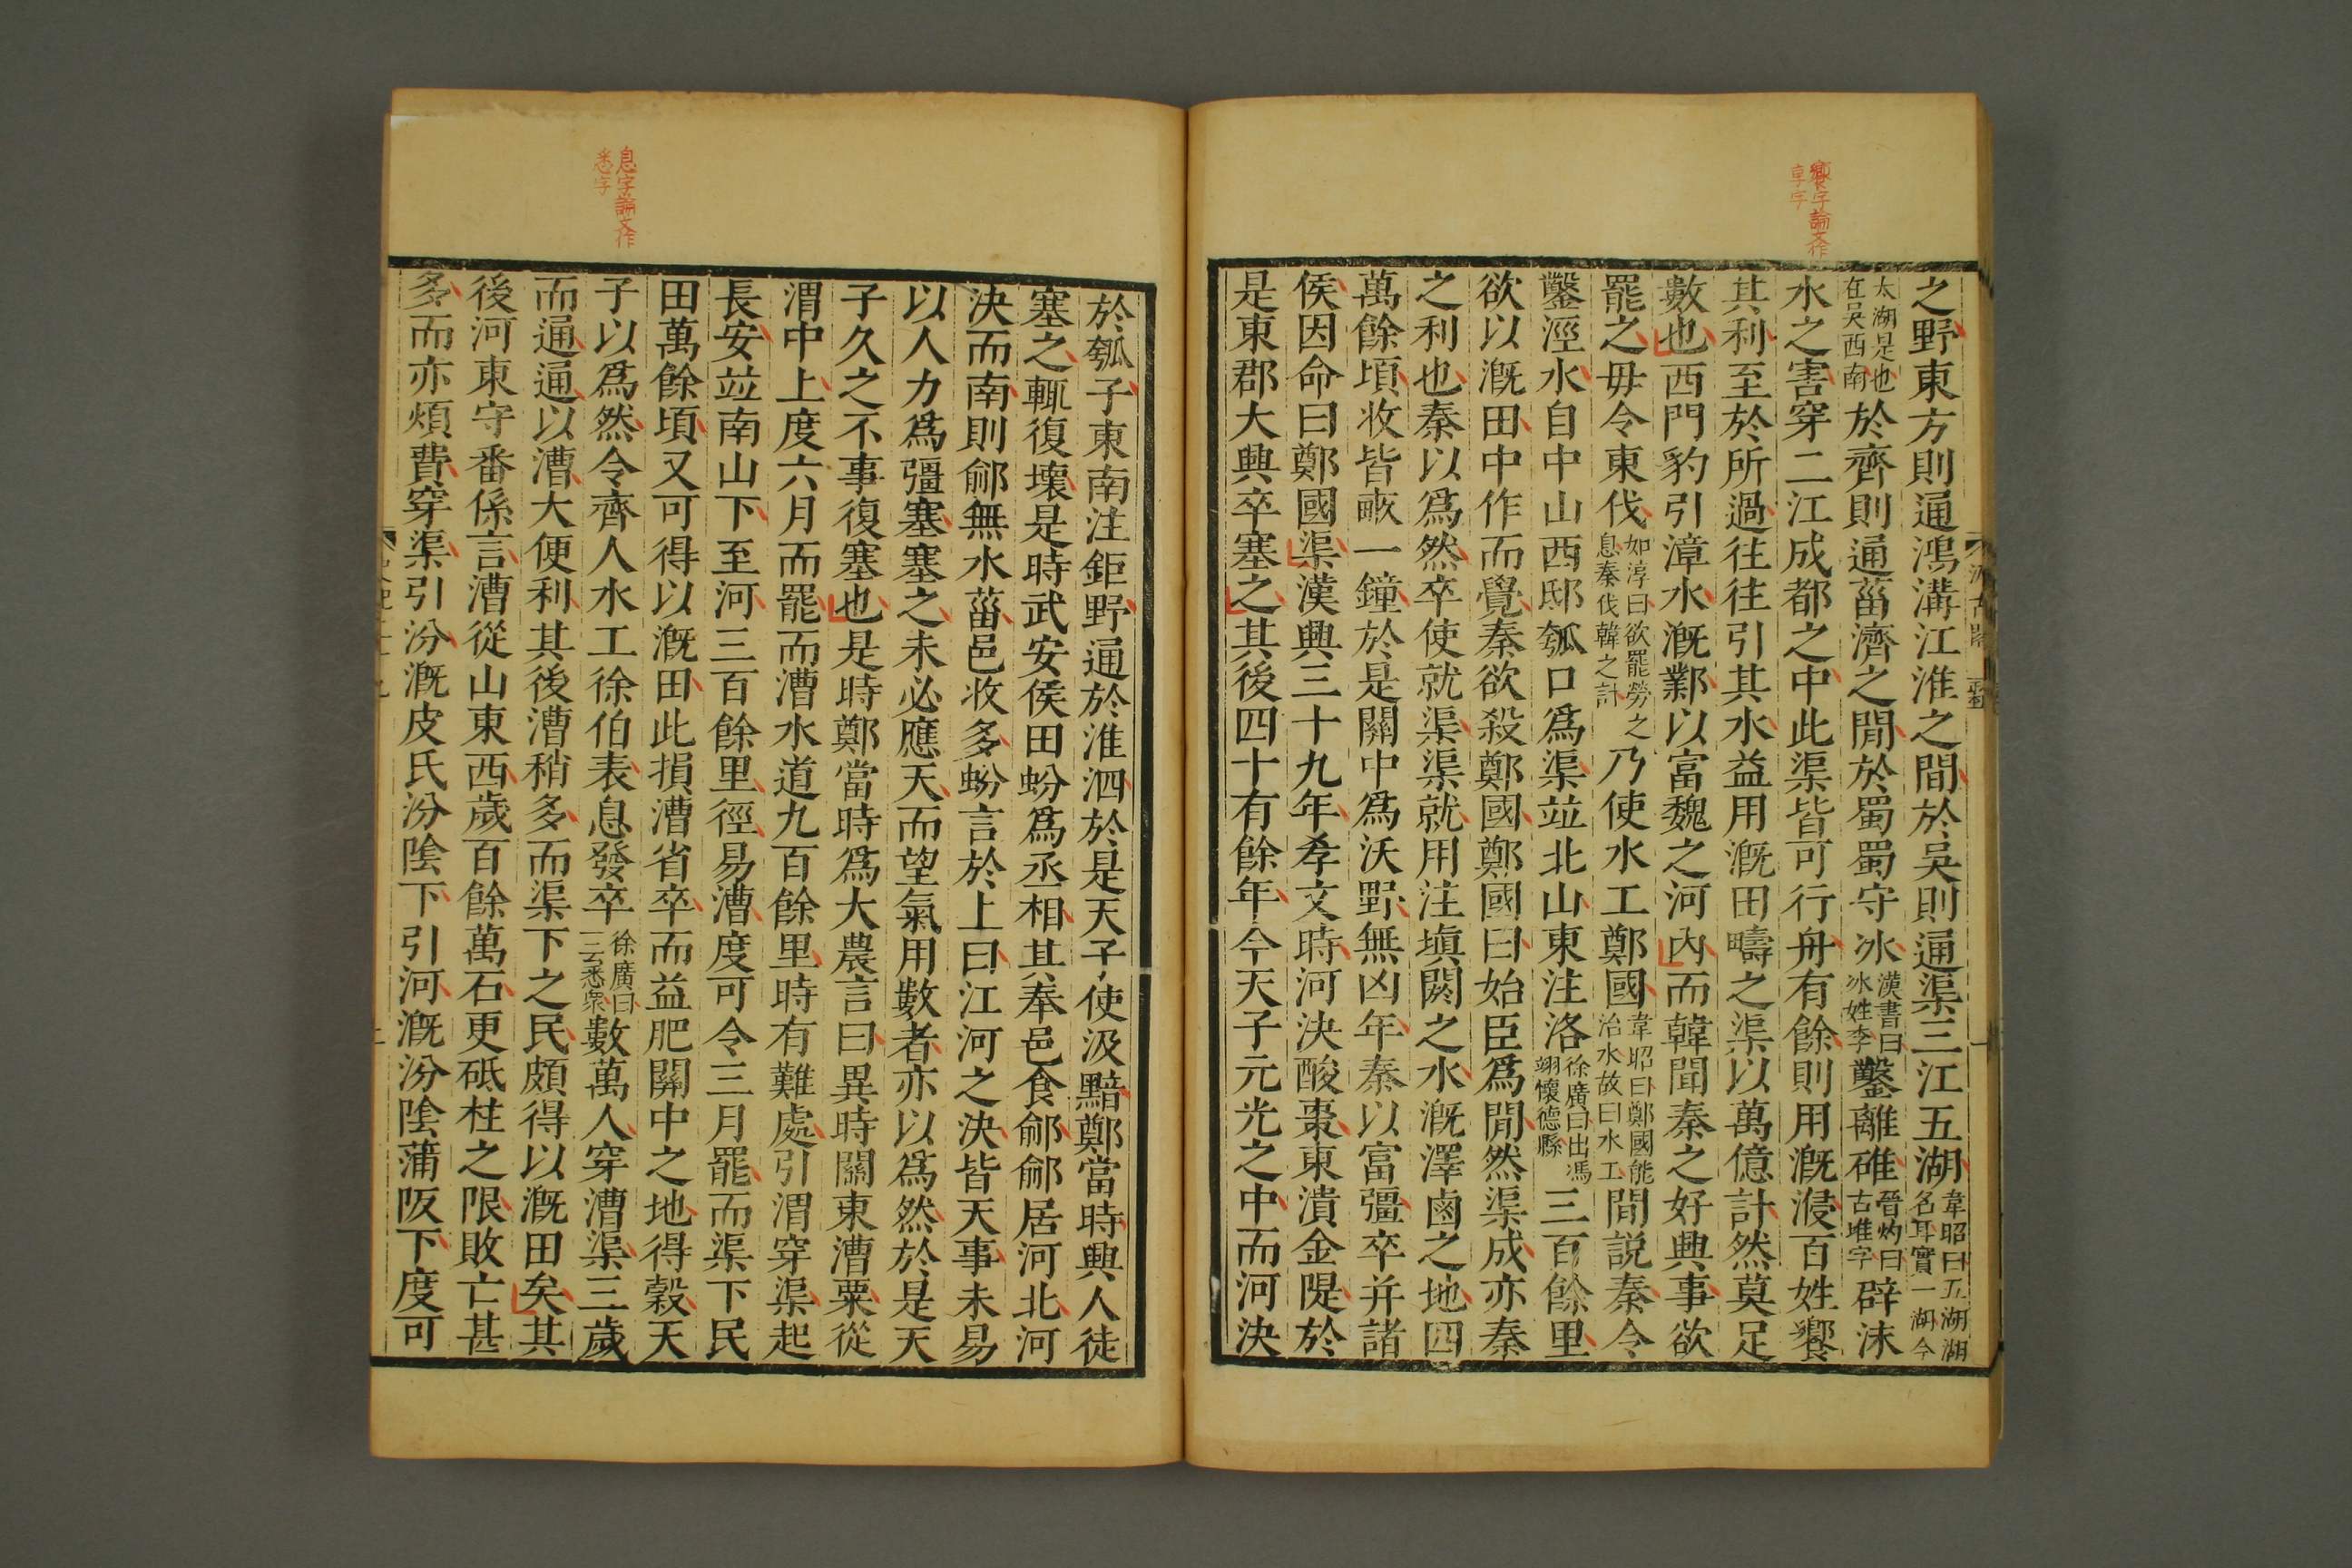 饗字論文作
享字
之野東方則通鴻溝江淮之間於吳則通渠三江五湖韋昭曰五湖湖名耳實一湖今
太湖是也在吳西南於齊則通菑濟之間於蜀蜀守冰漢書曰冰姓李鑿離碓晉灼曰古堆字辟沫
水之害穿二江成都之中此渠皆可行舟有餘則用溉浸百姓饗
其利至於所過往往引其水益用溉田疇之渠以萬億計然莫足
數也西門豹引漳水溉鄴以富魏之河內而韓聞秦之好興事欲
罷之毋令東伐如淳曰欲罷勞之息秦伐韓之計乃使水工鄭國韋昭曰鄭國能治水故曰水工間說秦令
鑿涇水自中山西邸瓠口爲渠竝北山東注洛徐廣曰出馮翊懷德縣三百餘里
欲以溉田中作而覺秦欲殺鄭國鄭國曰始臣爲間然渠成亦秦
之利也秦以爲然卒使就渠渠就用注填閼之水溉澤鹵之地四
萬餘頃收皆畝一鐘於是關中爲沃野無凶年秦以富彊卒并諸
侯因命曰鄭國渠漢興三十九年孝文時河決酸棗東潰金隄於
是東郡大興卒塞之其後四十有餘年今天子元光之中而河決
息字論文作
悉字
於瓠子東南注鉅野通於淮泗於是天子使汲黯鄭當時興人徒
塞之輒復壞是時武安侯田蚡爲丞相其奉邑食鄃鄃居河北河
決而南則鄃無水菑邑收多蚡言於上曰江河之決皆天事未易
以人力爲彊塞塞之未必應天而望氣用數者亦以爲然於是天
子久之不事復塞也是時鄭當時爲大農言曰異時關東漕粟從
渭中上度六月而罷而漕水道九百餘里時有難處引渭穿渠起
長安竝南山下至河三百餘里徑易漕度可令三月罷而渠下民
田萬餘頃又可得以溉田此損漕省卒而益肥關中之地得穀天
子以爲然令齊人水工徐伯表息發卒徐廣曰一云悉衆數萬人穿漕渠三歲
而通通以漕大便利其後漕稍多而渠下之民頗得以溉田矣其
後河東守番係言漕從山東西歲百餘萬石更砥柱之限敗亡甚
多而亦煩費穿渠引汾溉皮氏汾陰下引河溉汾陰蒲阪下度可